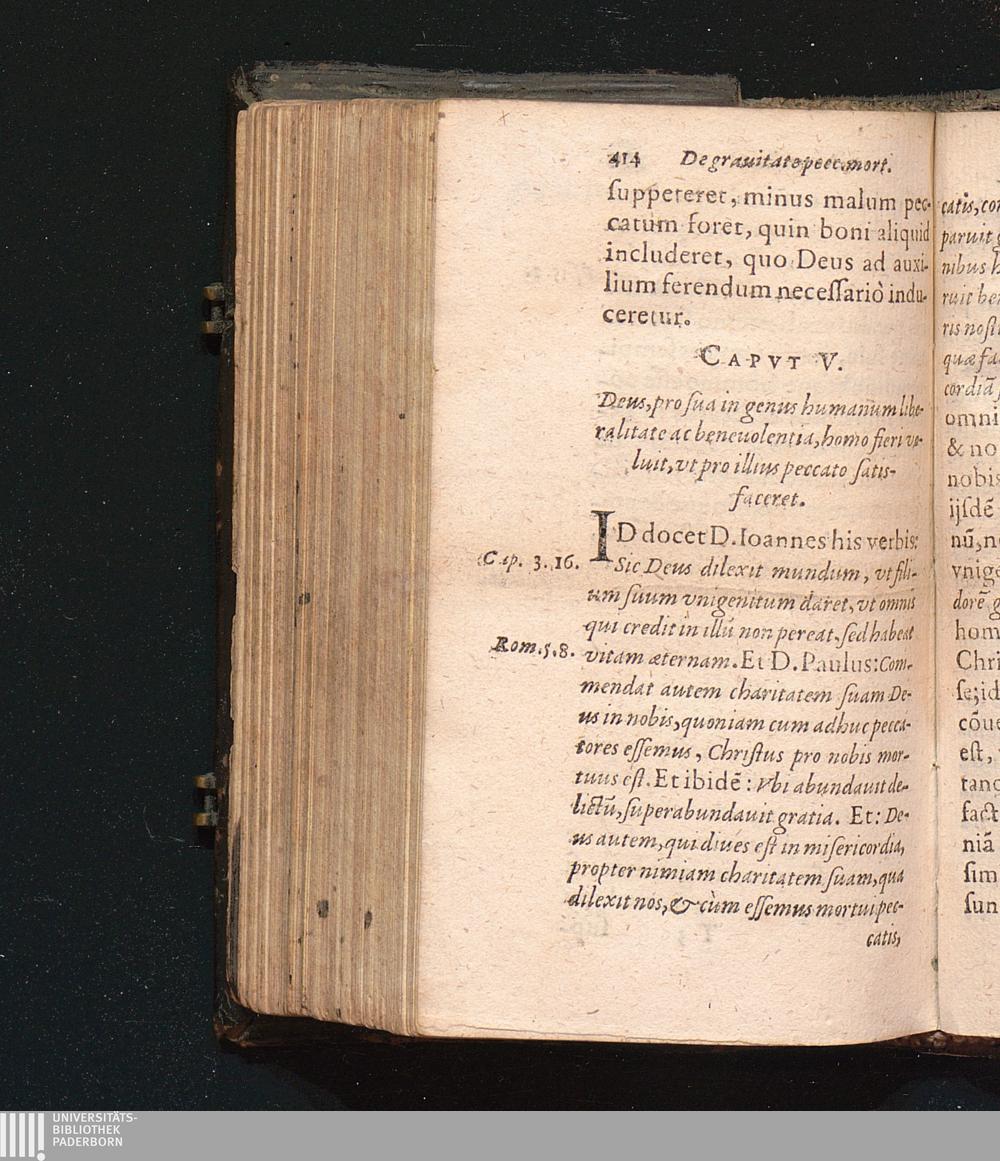 414 De grauitate pecc. mort.
ſuppeteret, minus malum pec-
catum foret, quin boni aliquid
includeret, quo Deus ad auxi-
lium ferendum neceſſariò indu-
ceretur.
CAPVT V.
Deus, pro ſua in genus humanum libe-
ralitate ac beneuolentia, homo fieri vo-
luit, vt pro illius peccato ſatis-
faceret.
ID docet D. Ioannes his verbis:
Cap. 3. 16.
Sic Deus dilexit mundum, vt fili-
um ſuum vnigenitum daret, vt omnis
qui credit in illũ non pereat, ſed habeat
Rom. 5. 8.
vitam æternam. Et D. Paulus: Com-
mendat autem charitatem ſuam De-
us in nobis, quoniam cum adhuc pecca-
tores eſſemus, Chriſtus pro nobis mor-
tuus eſt. Et ibidẽ: Vbi abundauit de-
lictũ, ſuperabundauit gratia. Et: De-
us autem, qui diues eſt in miſericordia,
propter nimiam charitatem ſuam, qua
dilexit nos, & cùm eſſemus mortui pec-
catis,
catis, con
paruit g
nibus h
ruit be
ris noſt
quæ fa
cordiã
omni
& no
nobis
ijſdẽ
nũ, n
vnige
dorẽ g
hom
Chri
ſe; id
cõue
eſt,
tanq
fact
niã
ſim
ſun
UNIVERSITÄTS-
BIBLIOTHEK
PADERBORN